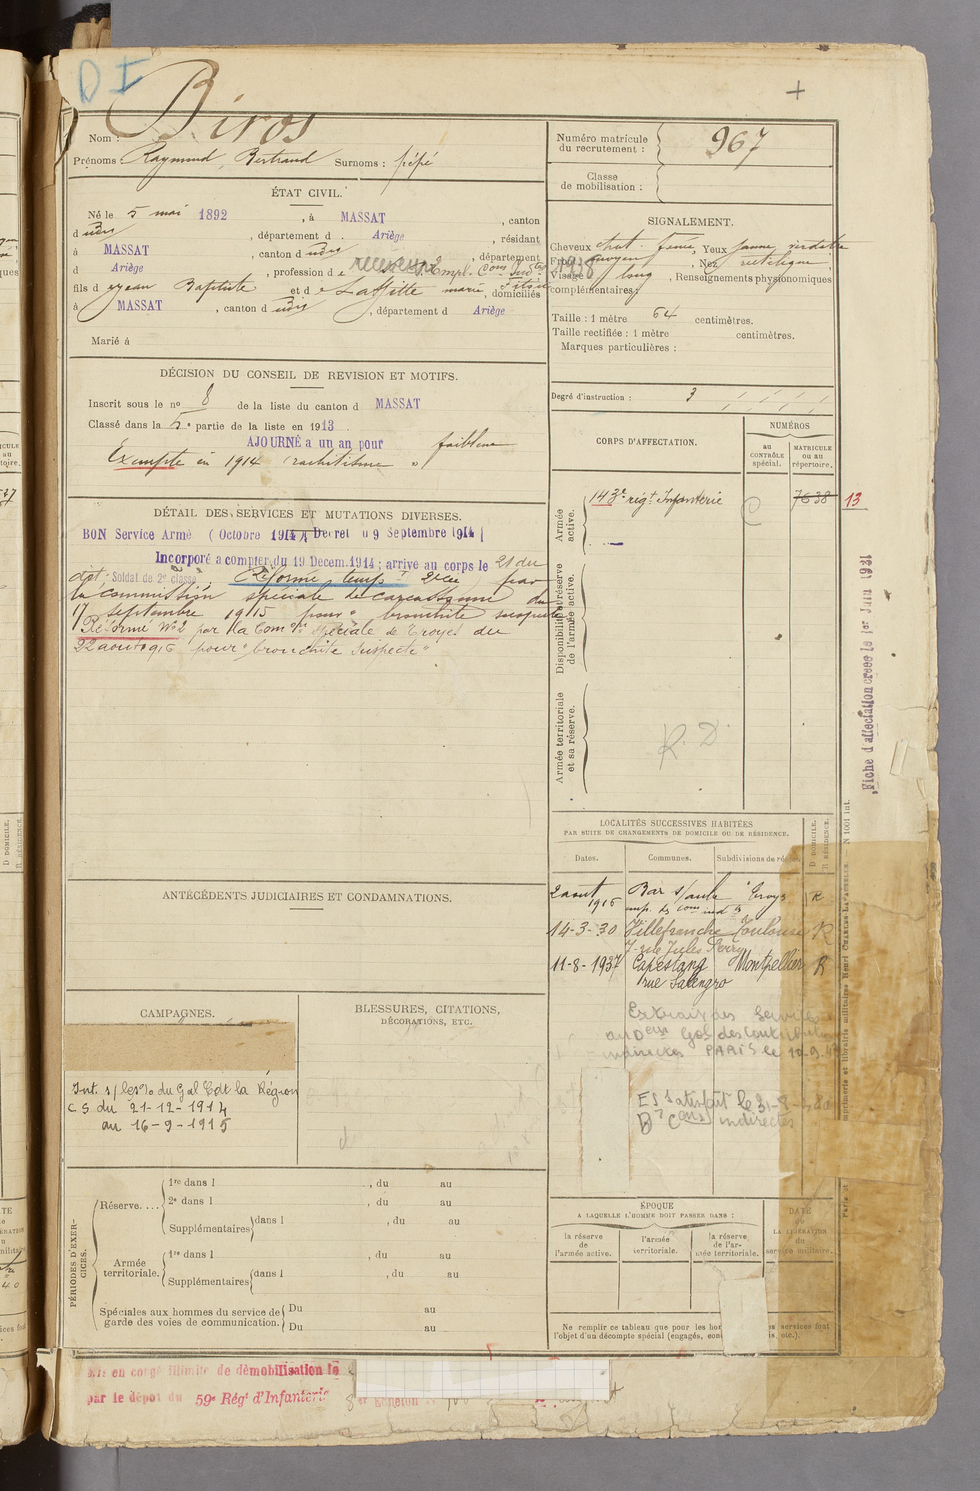 D I
Biros
Nom :
Prénoms : Raymond, Bertrand Surnoms : pépé
Numéro matricule du recrutement : 967
Classe de mobilisation :
ÉTAT CIVIL.
Né le 5 mai 1892, à MASSAT, canton
d udis, département d Ariège, résidant
à MASSAT, canton d udis, département
d Ariège, profession de Empl. Con
fils d e Jean Baptiste et d e Laffitte marie, domiciliés
à MASSAT, canton d udis, département d Ariège
Marié à
SIGNALEMENT.
Cheveux chat. foncé, Yeux jaune verdatre
Front moyen, Nez rectiligne,
Visage long, Renseignements physionomiques
complémentaires :
1938
Taille : 1 mètre 64 centimètres.
Taille rectifiée : 1 mètre centimètres.
Marques particulières :
DÉCISION DU CONSEIL DE REVISION ET MOTIFS.
Inscrit sous le nº 8 de la liste du canton d MASSAT
Classé dans la 5e partie de la liste en 1913.
AJOURNÉ a un an pour faiblesse
Exempté en 1914 "rachitisme"
Degré d'instruction : 3
CORPS D'AFFECTATION.
NUMÉROS
AU CONTRÔLE spécial.
MATRICULE ou au répertoire.
Armée active.
143e régt Infanterie
7638
13
Disponibilité et réserve de l'armée active.
Armée territoriale et sa réserve.
R. D.
DÉTAIL DES SERVICES ET MUTATIONS DIVERSES.
BON Service Armé (Octobre 1914) Decret du 9 Septembre 1914
Incorporé a compter du 19 Decem. 1914 ; arrivé au corps le 21 du
dit. Soldat de 2e classe. Réformé tempre 2 par
la commission spéciale de Carcassonne du
17 septembre 1915 pour "bronchite suspecte"
Réformé Nº2 par la Comon spéciale de Troyes du
22 aout 1916 pour "bronchite suspecte"
Fiche d'affectation creee le 1er Juin 1931
LOCALITÉS SUCCESSIVES HABITÉES
PAR SUITE DE CHANGEMENTS DE DOMICILE OU DE RÉSIDENCE.
Dates.
Communes.
Subdivisions de ré
D DOMICILE.
R RÉSIDENCE.
2 aout 1916 Bar s/aube Troyes R
emp. des con ind
14-3-30 Villefranche Toulouse R
7 rue Jules Ferry
11-8-1937 Capestang Montpellier R
rue Salengro
Extrait des Services
au D Gal des Contributions
indirectes PARIS le
ES satisfait le
Bon Cons indirectes
ANTÉCÉDENTS JUDICIAIRES ET CONDAMNATIONS.
CAMPAGNES.
Int. s/ les O. du Gal Cdt la Région
C S du 21-12-1914
au 16-9-1915
BLESSURES, CITATIONS,
DÉCORATIONS, ETC.
PÉRIODES D'EXERCICES.
Réserve....
1re dans l , du au
2e dans l , du au
Supplémentaires dans l , du au
Armée territoriale.
1re dans l , du au
Supplémentaires dans l , du au
Spéciales aux hommes du service de
garde des voies de communication.
Du au
Du au
ÉPOQUE
A LAQUELLE L'HOMME DOIT PASSER DANS :
la réserve de l'armée active.
l'armée territoriale.
la réserve de l'armée territoriale.
DATE
de
LA LIBÉRATION
du
service militaire.
Ne remplir ce tableau que pour les hom es services font
l'objet d'un décompte spécial (engagés, etc.).
Mis en congé illimité de démobilisation le
par le dépôt du 59e Régt d'Infanterie 8e échelon